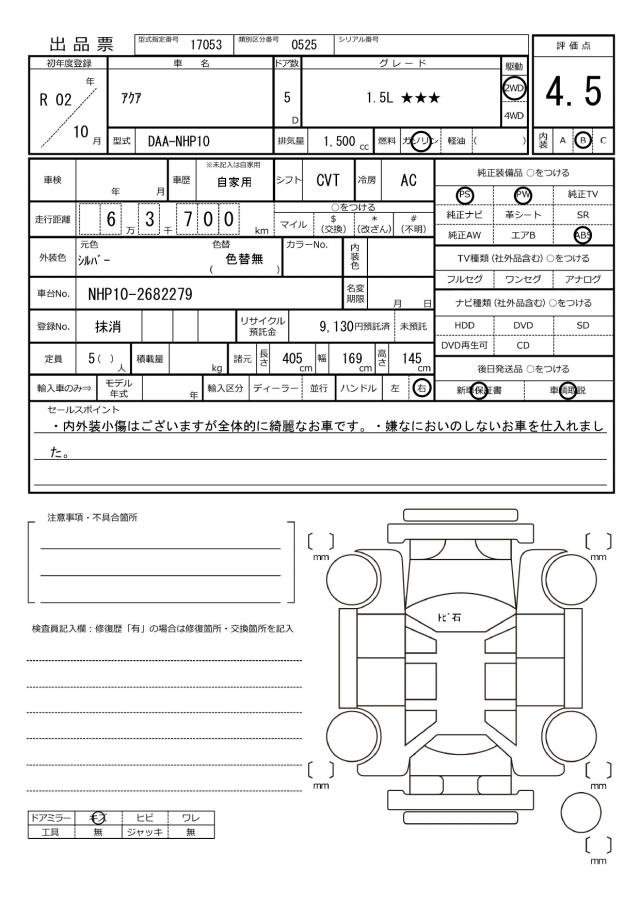 出品票 型式指定番号 17053 類別区分番号 0525 シリアル番号
初年度登録 車名 ドア数 グレード 駆動 評価点
R 02 年 10 月 ｱｸｱ 5 D 1.5L ★★★ 2WD 4WD 4.5
型式 DAA-NHP10 排気量 1,500 cc 燃料 ガソリン 軽油 ( ) 内装 A B C
車検 年 月 車歴 ※未記入は自家用 自家用 シフト CVT 冷房 AC
走行距離 6 万 3 千 7 0 0 km
○をつける
マイル $ (交換) * (改ざん) # (不明)
外装色 元色 ｼﾙﾊﾞｰ 色替 ( 色替無 ) カラーNo. 内装色
車台No. NHP10-2682279 名変期限 月 日
登録No. 抹消 リサイクル預託金 9,130円預託済 未預託
定員 5 ( ) 人 積載量 kg 諸元 長さ 405 cm 幅 169 cm 高さ 145 cm
輸入車のみ⇒ モデル年式 年 輸入区分 ディーラー 並行 ハンドル 左 右
純正装備品 ○をつける
PS PW 純正TV
純正ナビ 革シート SR
純正AW エアB ABS
TV種類 (社外品含む) ○をつける
フルセグ ワンセグ アナログ
ナビ種類 (社外品含む) ○をつける
HDD DVD SD
DVD再生可 CD
後日発送品 ○をつける
新車保証書 車輌取説
セールスポイント
・内外装小傷はございますが全体的に綺麗なお車です。・嫌なにおいのしないお車を仕入れまし
た。
注意事項・不具合箇所
検査員記入欄：修復歴「有」の場合は修復箇所・交換箇所を記入
ドアミラー キズ ヒビ ワレ
工具 無 ジャッキ 無
[ ] mm
[ ] mm
ﾄﾋﾞ石
[ ] mm
[ ] mm
[ ] mm